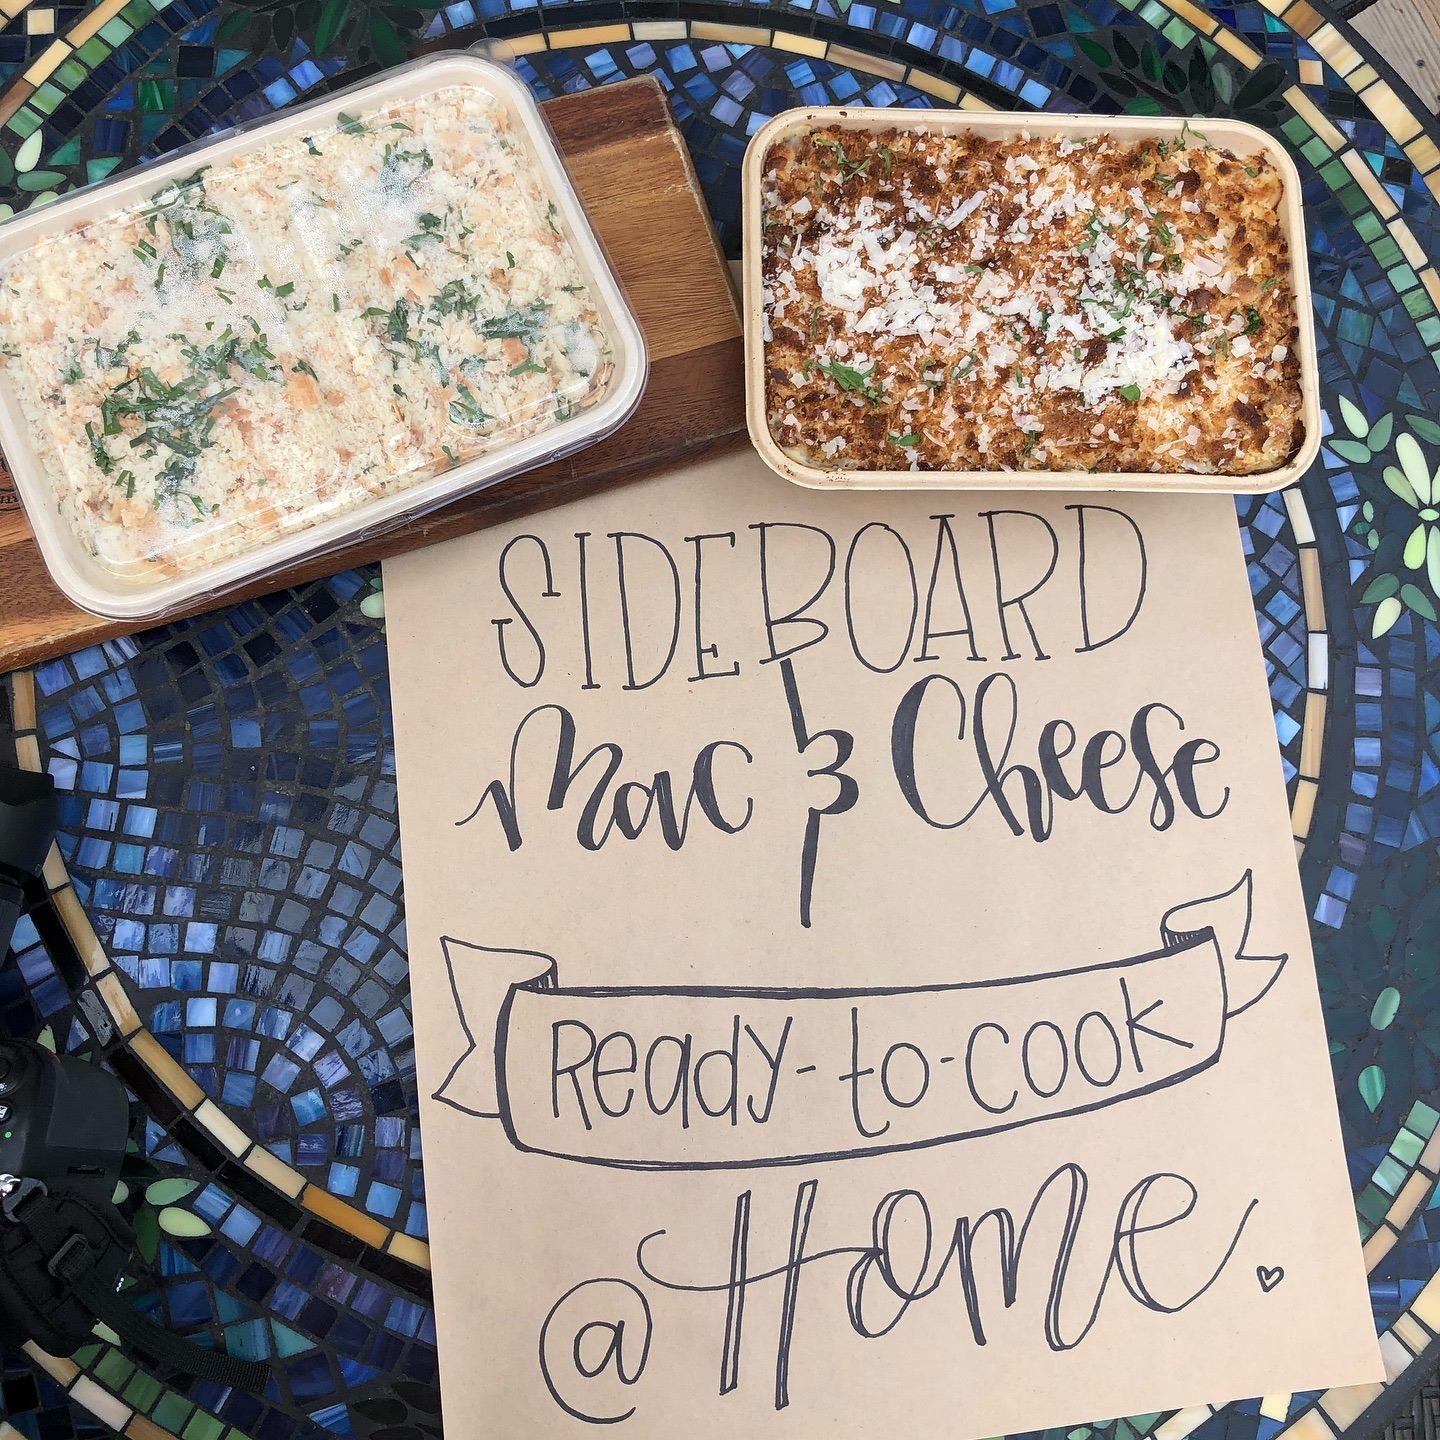 SIDEBOARD
Mac & Cheese
Ready-to-cook
@ Home.